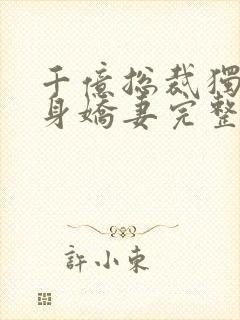 千億總裁獨
身嬌妻完整
許小東